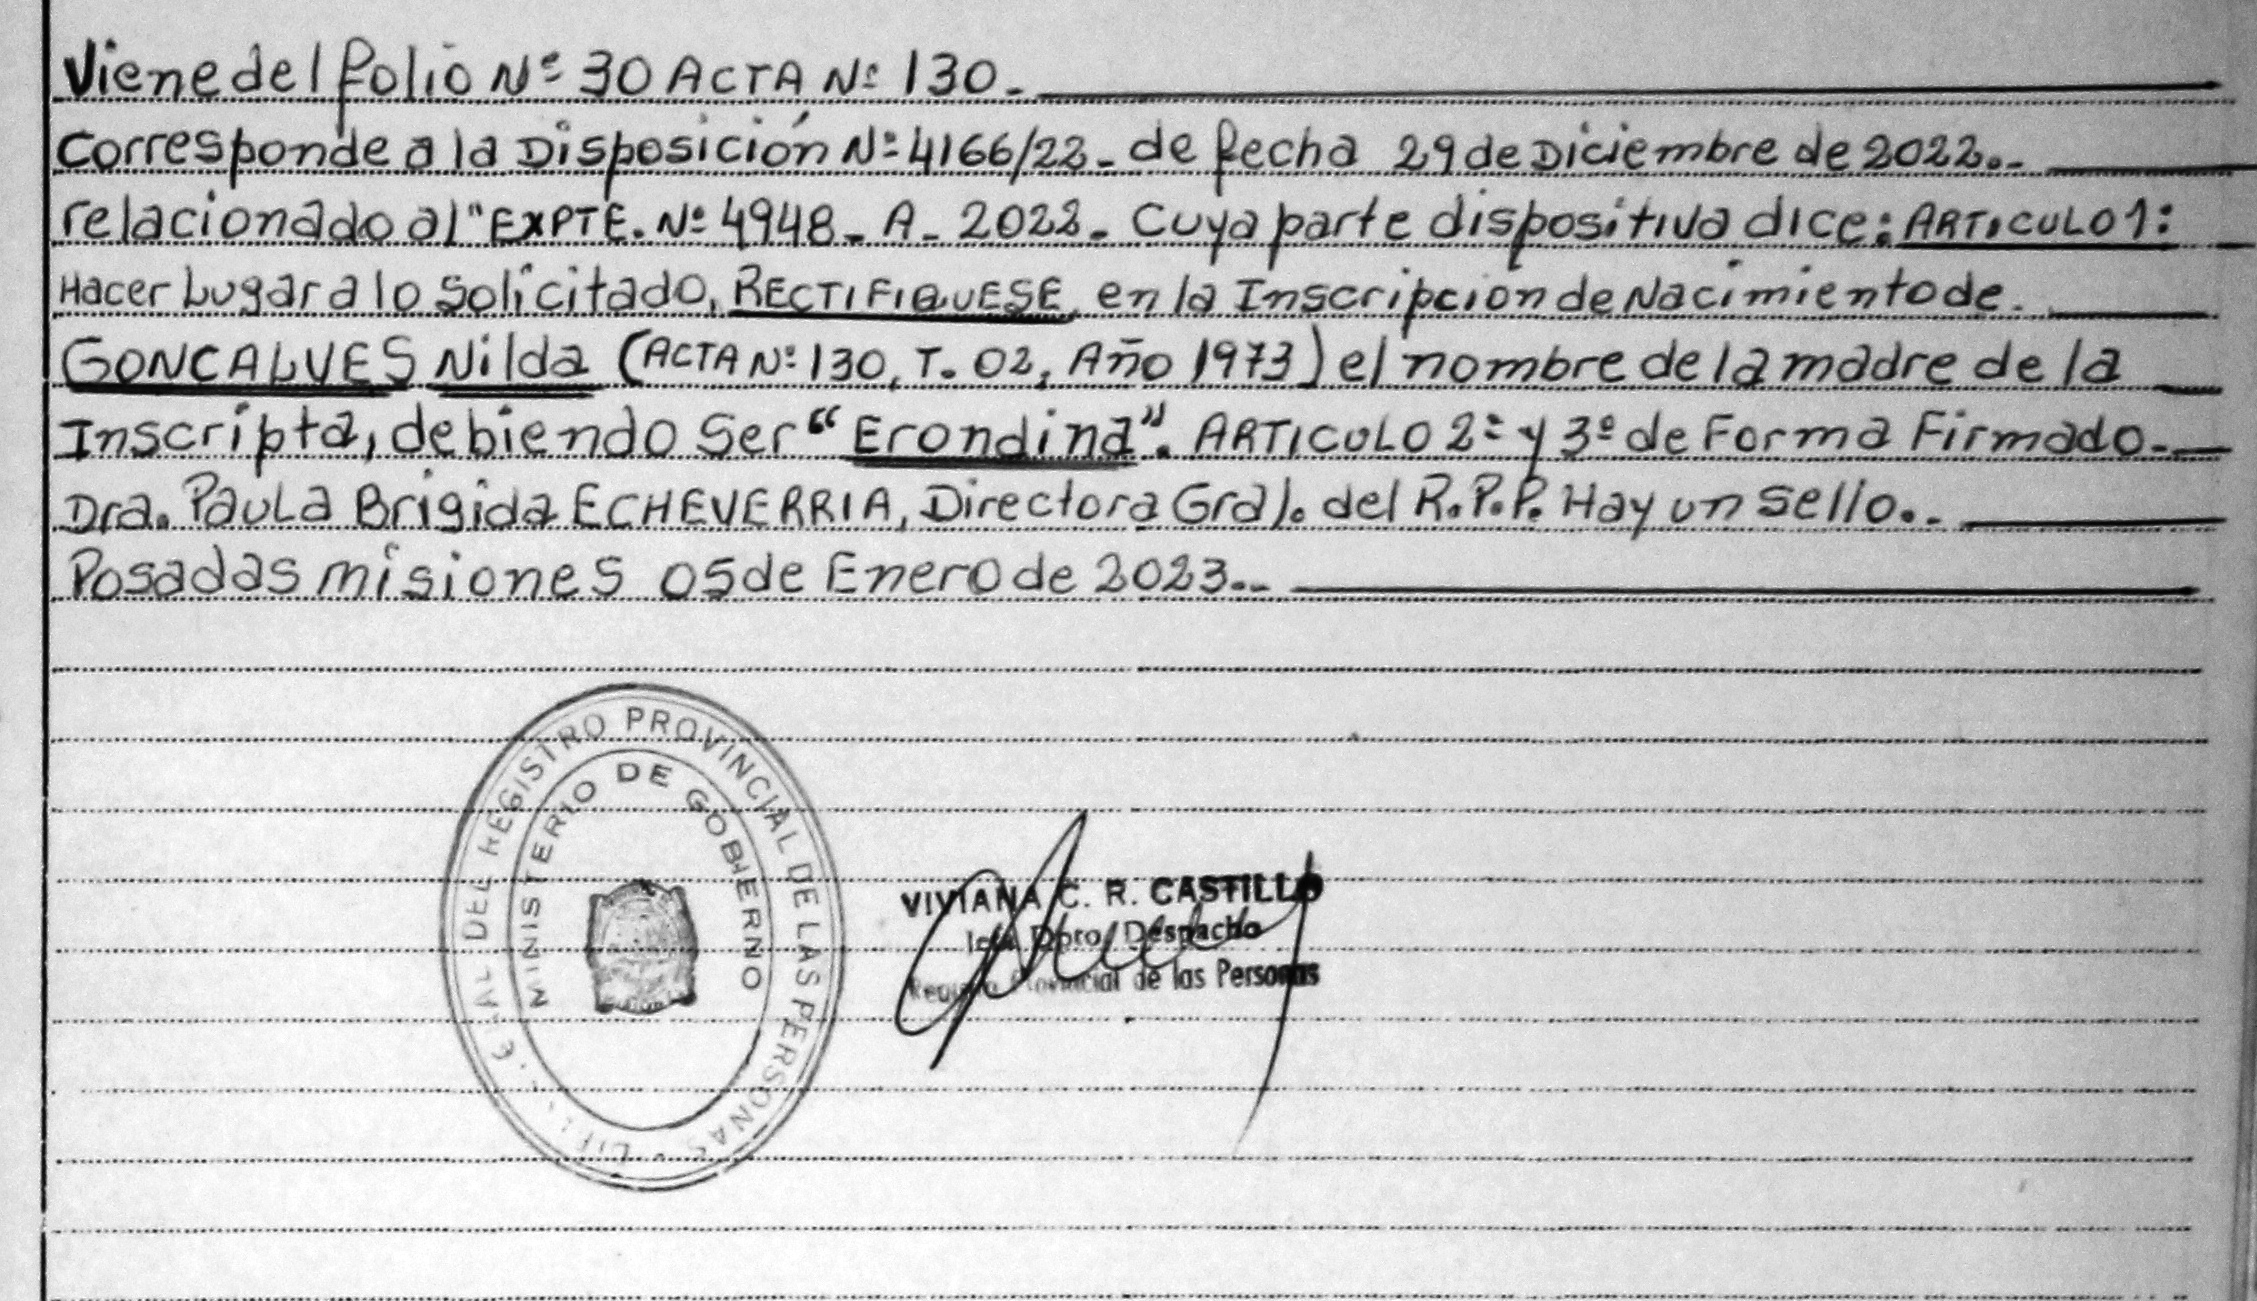 Viene del folio Nº 30 ACTA Nº 130.
Corresponde a la Disposición Nº 4166/22. de fecha 29 de Diciembre de 2022..
relacionado al "EXPTE. Nº 4948. A. 2022. Cuya parte dispositiva dice: ARTICULO 1:
Hacer Lugar a lo Solicitado, RECTIFIQUESE, en la Inscripcion de Nacimiento de.
GONCALVES Nilda (ACTA Nº 130, T. 02, Año 1973) el nombre de la madre de la
Inscripta, debiendo Ser "Erondina". ARTICULO 2º y 3º de Forma Firmado.
Dra. Paula Brigida ECHEVERRIA, Directora Gral. del R.P.P. Hay un Sello..
Posadas misiones 05 de Enero de 2023..
AL DEL REGISTRO PROVINCIAL DE LAS PERSONAS
MINISTERIO DE GOBIERNO
VIVIANA C. R. CASTILLO
Jefa Dpto. Despacho
Registro Provincial de las Personas